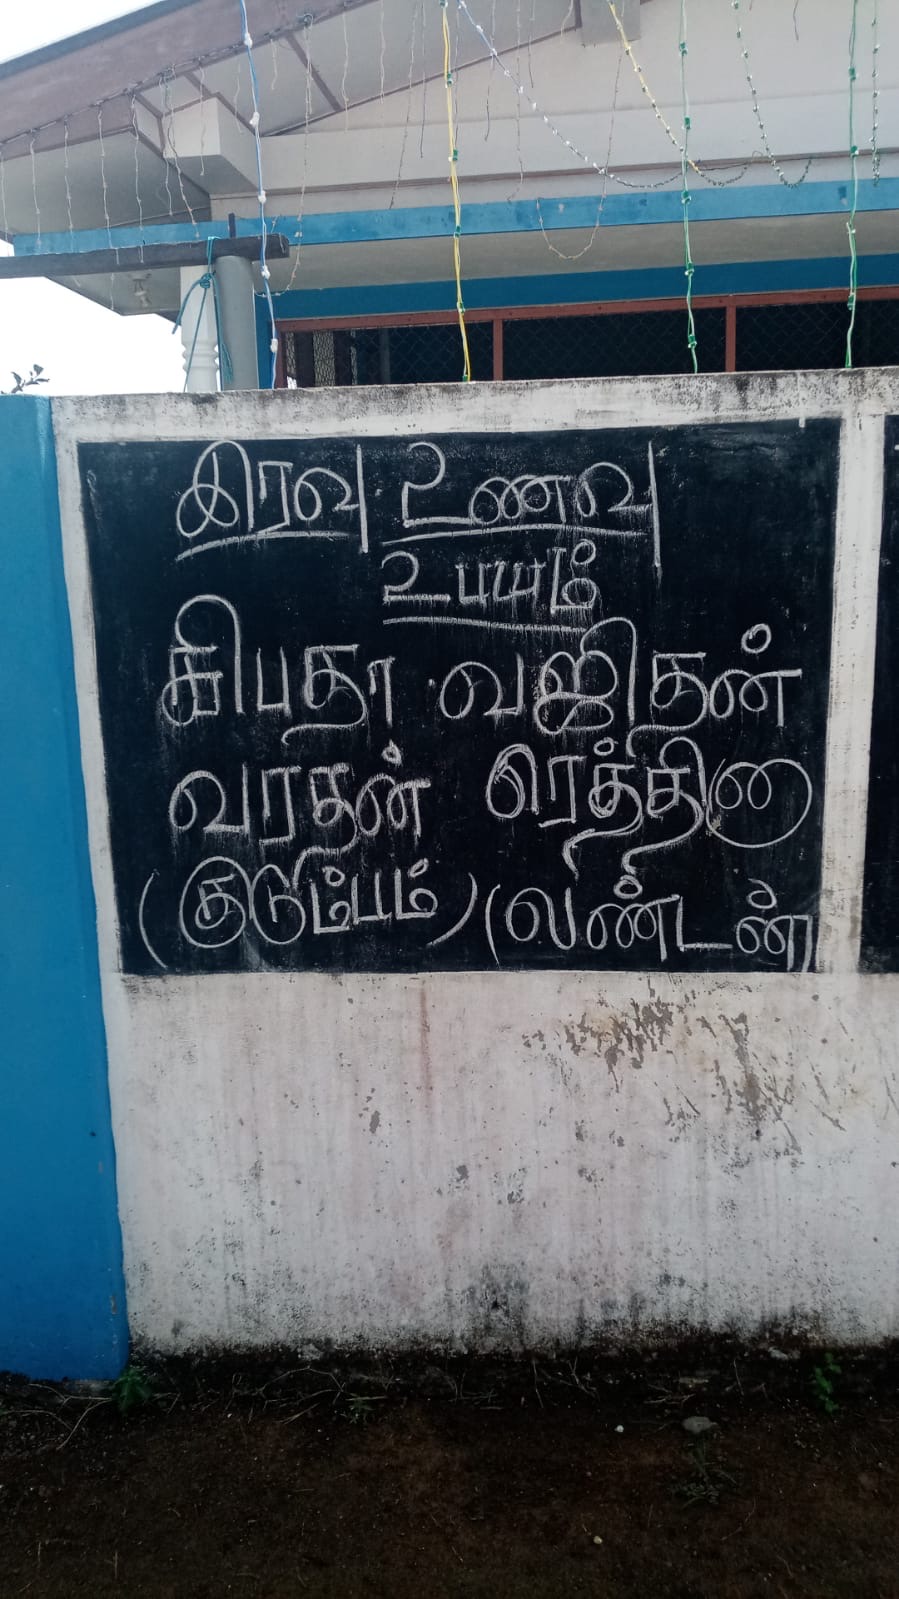 இரவு உணவு
உபயம்
சிபதா வஜிதன்
வரதன் ரெத்தினு
(குடும்பம்) (லண்டன்)